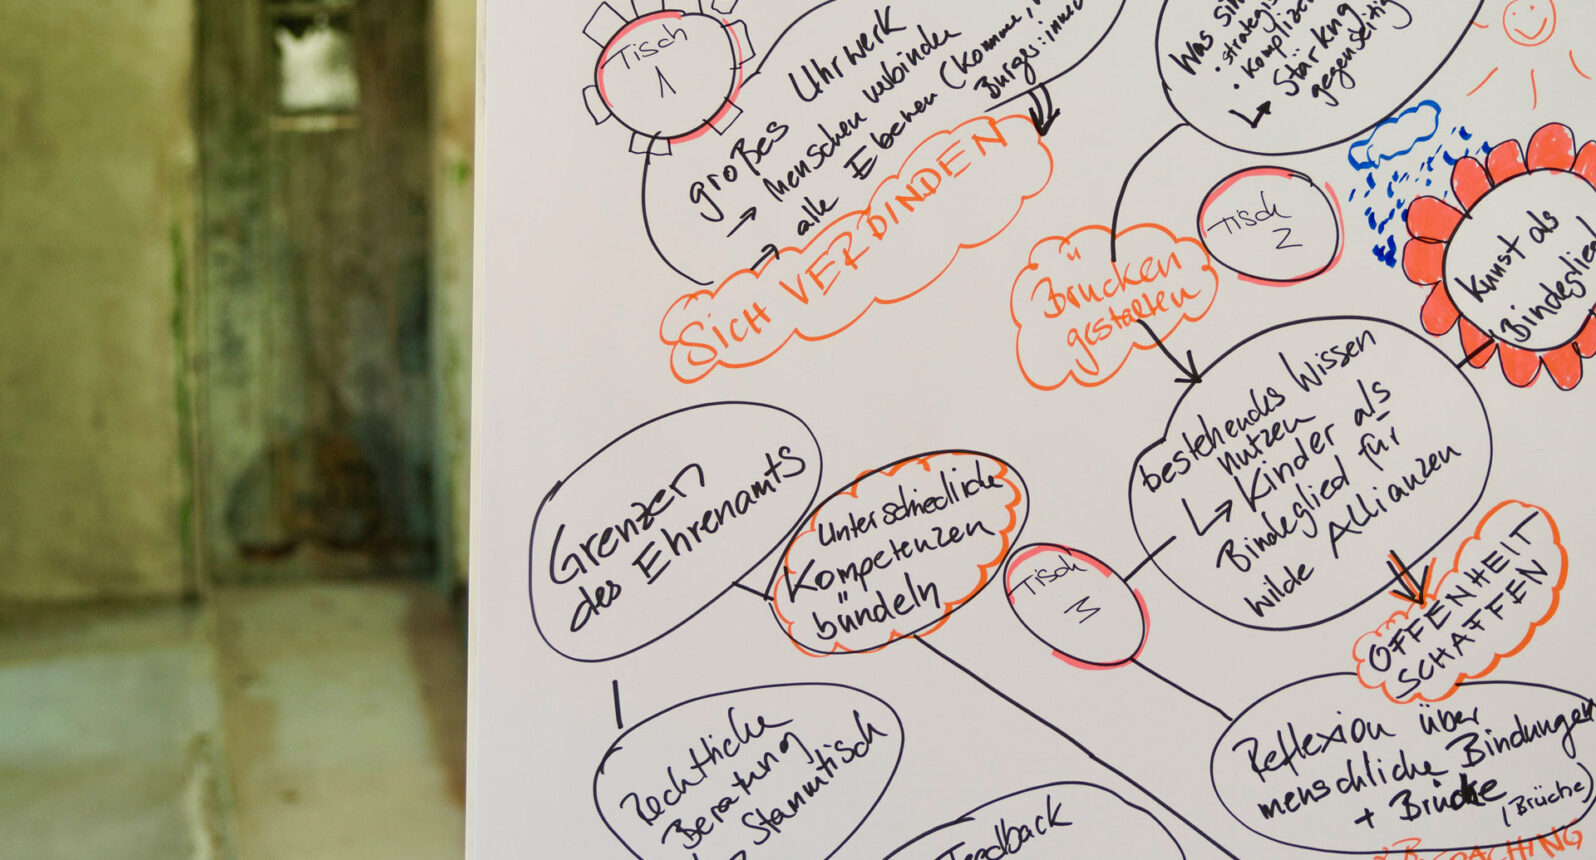 Tisch
1
großes Uhrwerk
→ Menschen verbinden
→ alle Ebenen (Kommune,
Bürger:innen
SICH VERBINDEN
Was
strategis
• Komplize
↳ Stärkung
gegenseitig
Tisch
2
Brücken
gestalten
Kunst als
Bindeglied
bestehendes Wissen
nutzen
↳ Kinder als
Bindeglied für
wilde Allianzen
OFFENHEIT
SCHAFFEN
Tisch
3
Grenzen
des Ehrenamts
Unterschiedliche
Kompetenzen
bündeln
Rechtliche
Beratung
Stammtisch
Feedback
Reflexion über
menschliche Bindungen
+ Brücke
(Brüche)